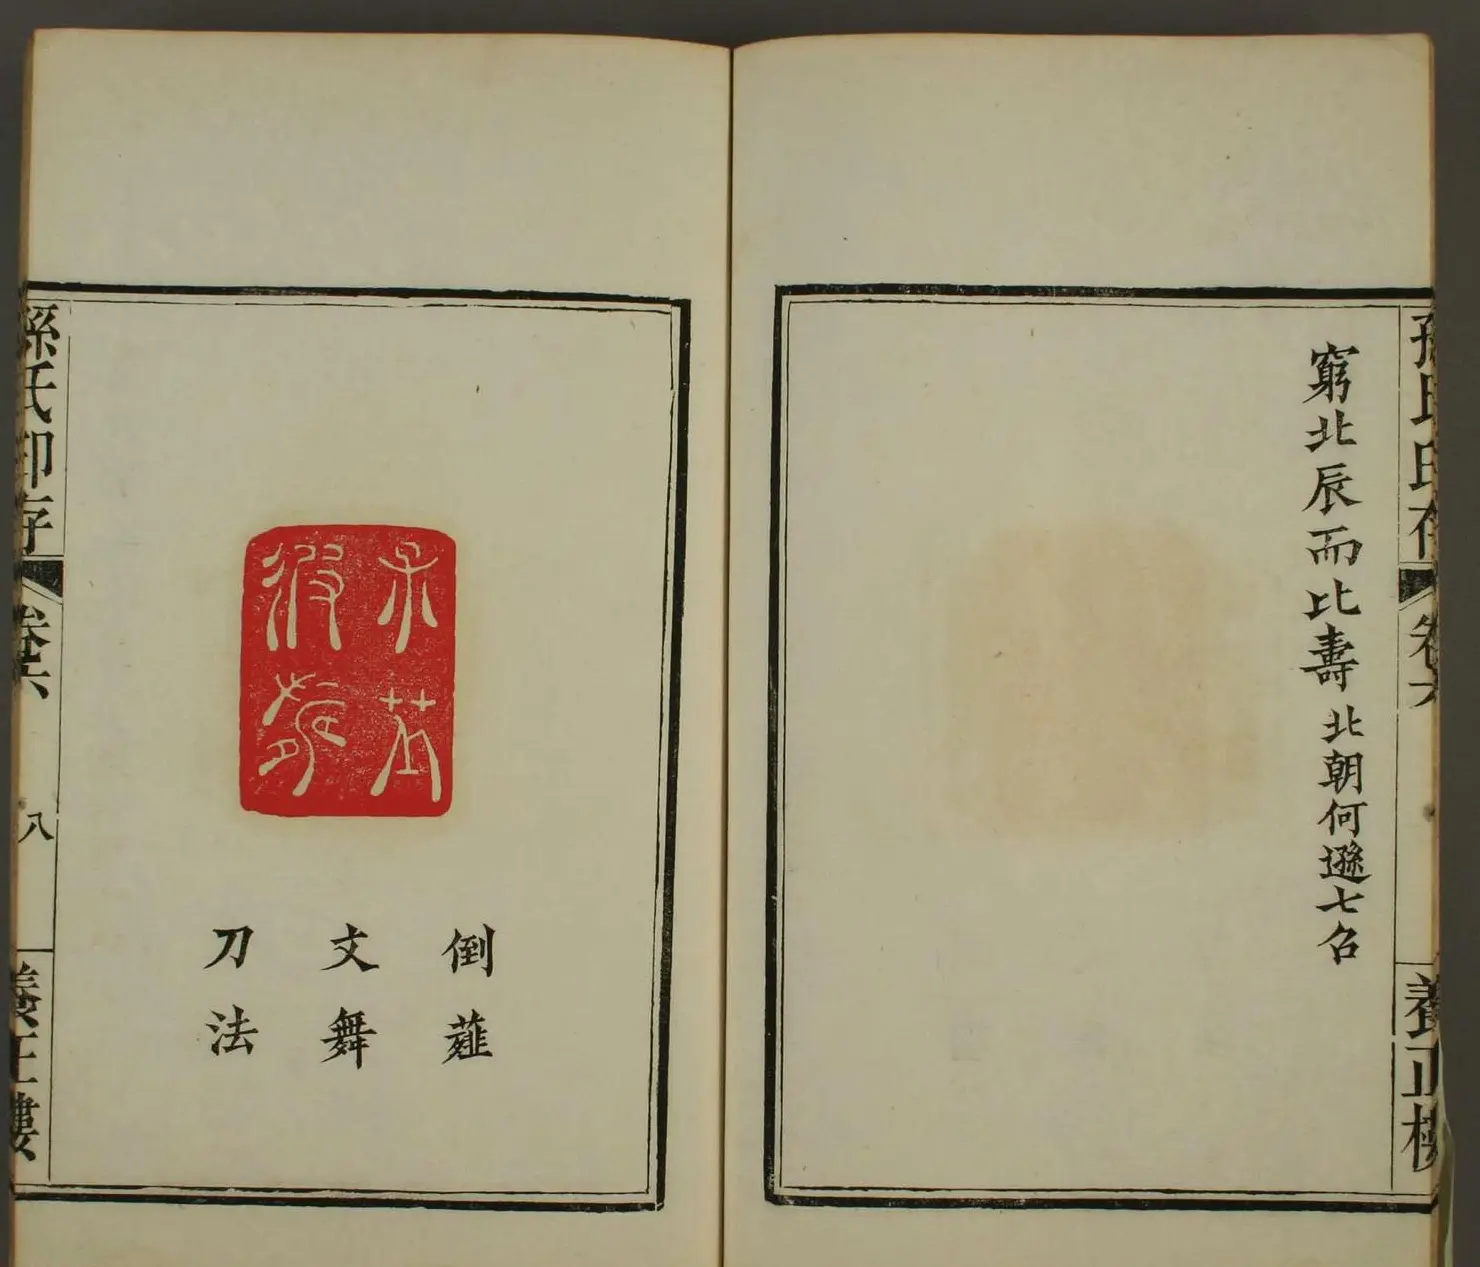 孫氏印存
卷六
養正樓
窮北辰而比壽 北朝何遜七召
倒薤
文舞
刀法
孫氏印存
卷六
八
養正樓